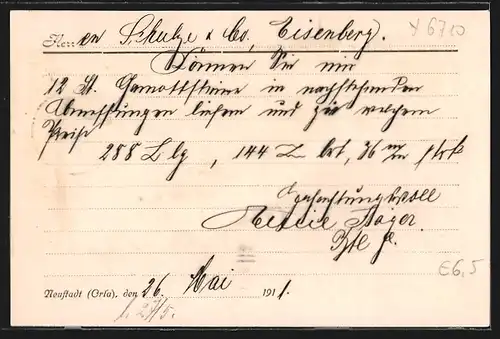 Herren Schulze & Co, Eisenberg.
Können Sie mir
12 St. Chamottsteine in nachstehenden
Abmessungen liefern und zu welchem
Preise
288 L lg, 144 br, 36 m/m stark
Hochachtungsvoll
Jäger
Neustadt (Orla), den 26. Mai 1911.
27/5.
€6,5